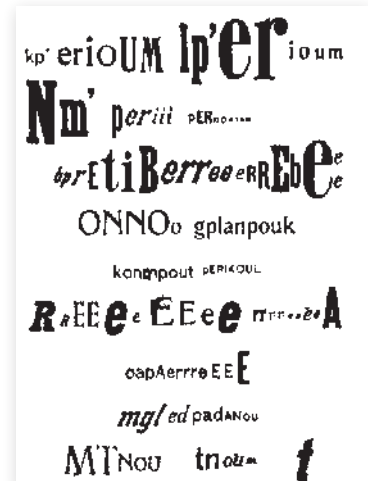 kp' erioUM lp'er ioum
Nm' periii pERnounn
bprEtiBerreeeeRREbeee
ONNOo gplanpouk
konmpout pERIKOUL
RREEeeEEeee rrrreeeeA
oapAerrreEEE
mgl ed padANou
MTNou tnoum t